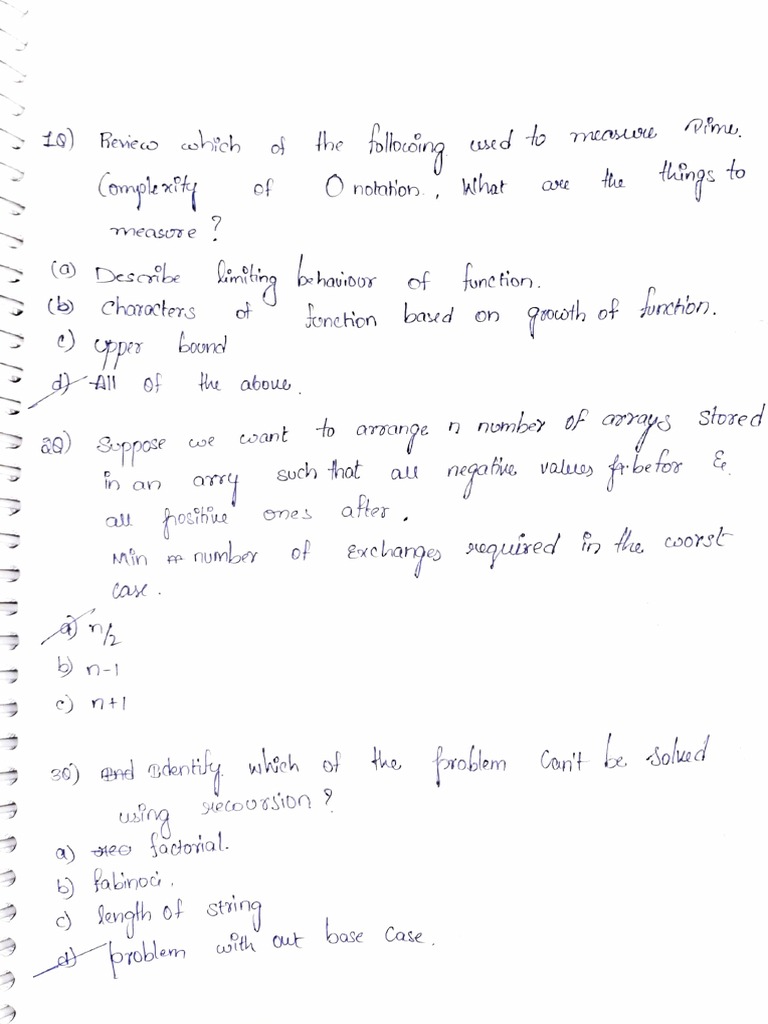 1Q) Review which of the following used to measure Time.
Complexity of O notation, What are the things to
measure?
(a) Describe limiting behaviour of function.
(b) characters of function based on growth of function.
c) upper bound
d) All of the above.
2Q) Suppose we want to arrange n number of arrays stored
in an arry such that all negative values befor &
all positive ones after.
Min number of exchanges required in the worst
case.
a) n/2
b) n-1
c) n+1
3Q) Identify which of the problem can't be solved
using recoursion?
a) factorial.
b) fabinoci.
c) length of string
d) problem with out base case.